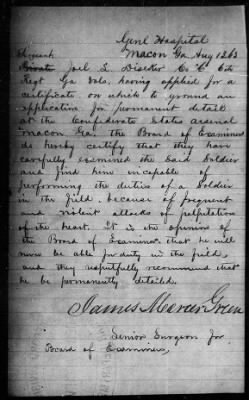 Genl Hospital
Macon Ga Aug 1863
Sergeant Private Joel L. Co 6th
Regt Ga Vols, having applied for a
certificate, on which to ground an
application for permanent detail
at the Confederate States Arsenal
Macon Ga, the Board of Examiners
do hereby certify that they have
carefully examined the said Soldier
and find him incapable of
performing the duties of a Soldier
in the field, because of frequent
and violent attacks of palpitation
of the heart. It is the opinion of
the Board of Examiners that he will
never be able for duty in the field,
and they respectfully recommend that
he be permanently detailed.
James Mercer Green
Senior Surgeon for
Board of Examiners,